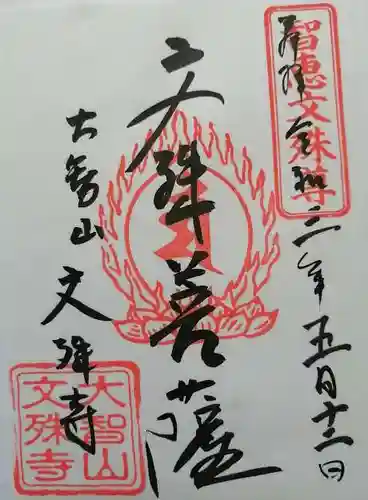 智恵文殊尊
奉拝 令和二年五月十二日
文殊菩薩
大智山 文殊寺
大智山
文殊寺